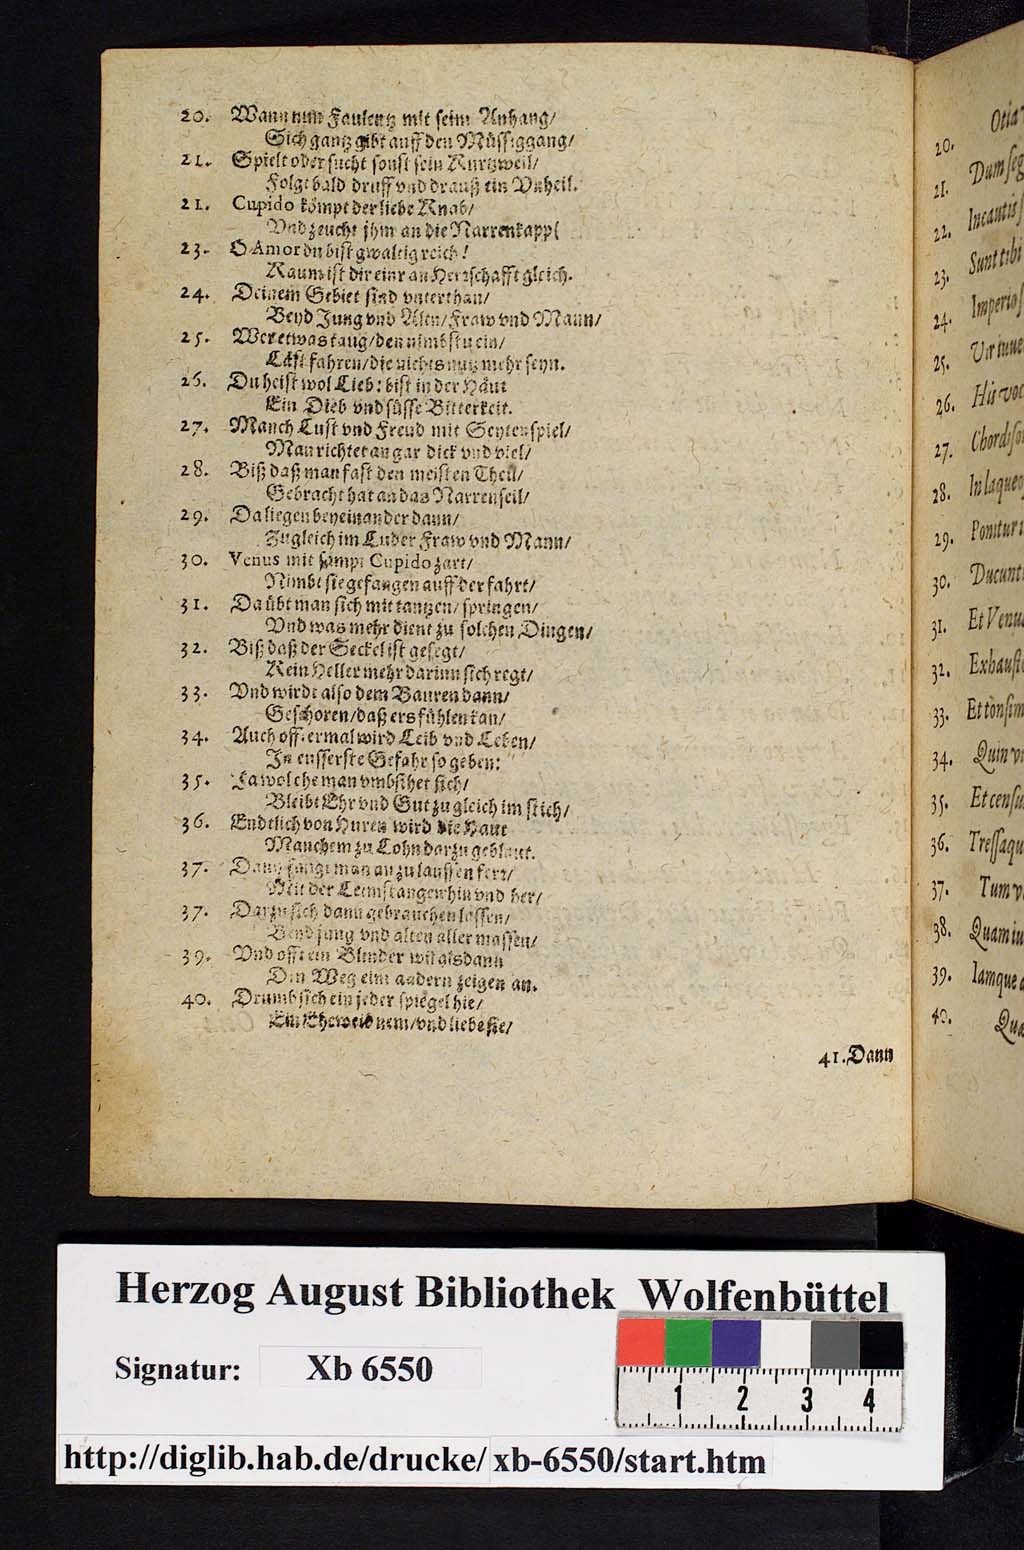 20. Wann nun Faulentz mit seim Anhang/
Sich gantz gibt auff den Müssiggang/
21. Spielt oder sucht sonst sein Kurtzweil/
Folgt bald druff vnd drauß ein Vnheil.
21. Cupido kömpt der liebe Knab/
Vnd zeucht jhm an die Narrenkapp/
23. O Amor du bist gwaltig reich!
Kaum ist dir einr an Herrschafft gleich.
24. Deinem Gebiet sind vnterthan/
Beyd Jung vnd Altn/ Fraw vnd Mann/
25. Wer etwas taug/ den nimbstu ein/
Läst fahren/ die nichts nutz mehr seyn.
26. Du heist wol Lieb: bist in der Häut
Ein Dieb vnd süsse Bitterkeit.
27. Manch Lust vnd Freud mit Seytenspiel/
Man richtet an gar dick vnd viel/
28. Biß daß man fast den meisten Theil/
Gebracht hat an das Narrenseil/
29. Da liegen beyeinander dann/
Zugleich im Luder Fraw vnd Mann/
30. Venus mit sampt Cupido zart/
Nimbt sie gefangen auff der fahrt/
31. Da übt man sich mit tantzen/ springen/
Vnd was mehr dient zu solchen Dingen/
32. Biß daß der Seckel ist gefegt/
Kein Heller mehr darinn sich regt/
33. Vnd wirdt also dem Bauren dann/
Geschoren/ daß ers fühlen kan/
34. Auch offtermal wird Leib vnd Leben/
In eusserste Gefahr so geben:
35. Ja wol che man vmbsihet sich/
Bleibt Ehr vnd Gut zugleich im stich/
36. Endtlich von Huren wird die Haut
Manchem zu Lohn darzu geblaut.
37. Dann fängt man an zu laussen fern/
Mit der Leimstangen hin vnd her/
37. Darzu sich dann gebrauchen lassen/
Beyd jung vnd alten aller massen/
39. Vnd offt ein Blinder wil alsdann
Den Weg eim andern zeigen an.
40. Drumb sich ein jeder spiegel hie/
Ein Eheweib nem/ vnd liebe sie/
41. Dann
20. Otia
21. Dum seg
22. Incautis
23. Sunt tibi
24. Imperio
25. Vir iuue
26. His voc
27. Chordiso
28. In laqueo
29. Ponitur
30. Ducunt
31. Et Venu
32. Exhausti
33. Et tonsim
34. Quin v
35. Et censu
36. Tressaqu
37. Tum v
38. Quam iu
39. Iamque
40. Qua
Herzog August Bibliothek Wolfenbüttel
Signatur: Xb 6550
1 2 3 4
http://diglib.hab.de/drucke/ xb-6550/start.htm